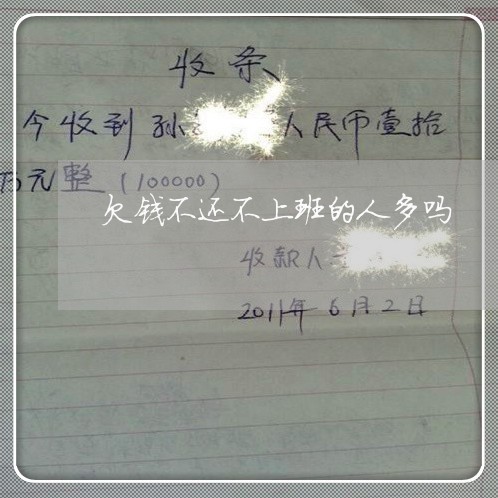 收条
今收到孙 人民币壹拾
万元整(100000)
欠钱不还不上班的人多吗
收款人
2011年6月2日